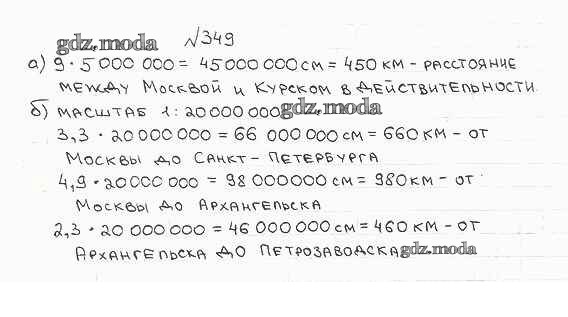 gdz.moda №349
а) 9 · 5 000 000 = 45 000 000 см = 450 км - расстояние
между Москвой и Курском в действительности.
б) масштаб 1 : 20 000 000 gdz.moda
3,3 · 20 000 000 = 66 000 000 см = 660 км - от
Москвы до Санкт-Петербурга
4,9 · 20 000 000 = 98 000 000 см = 980 км - от
Москвы до Архангельска
2,3 · 20 000 000 = 46 000 000 см = 460 км - от
Архангельска до Петрозаводска gdz.moda